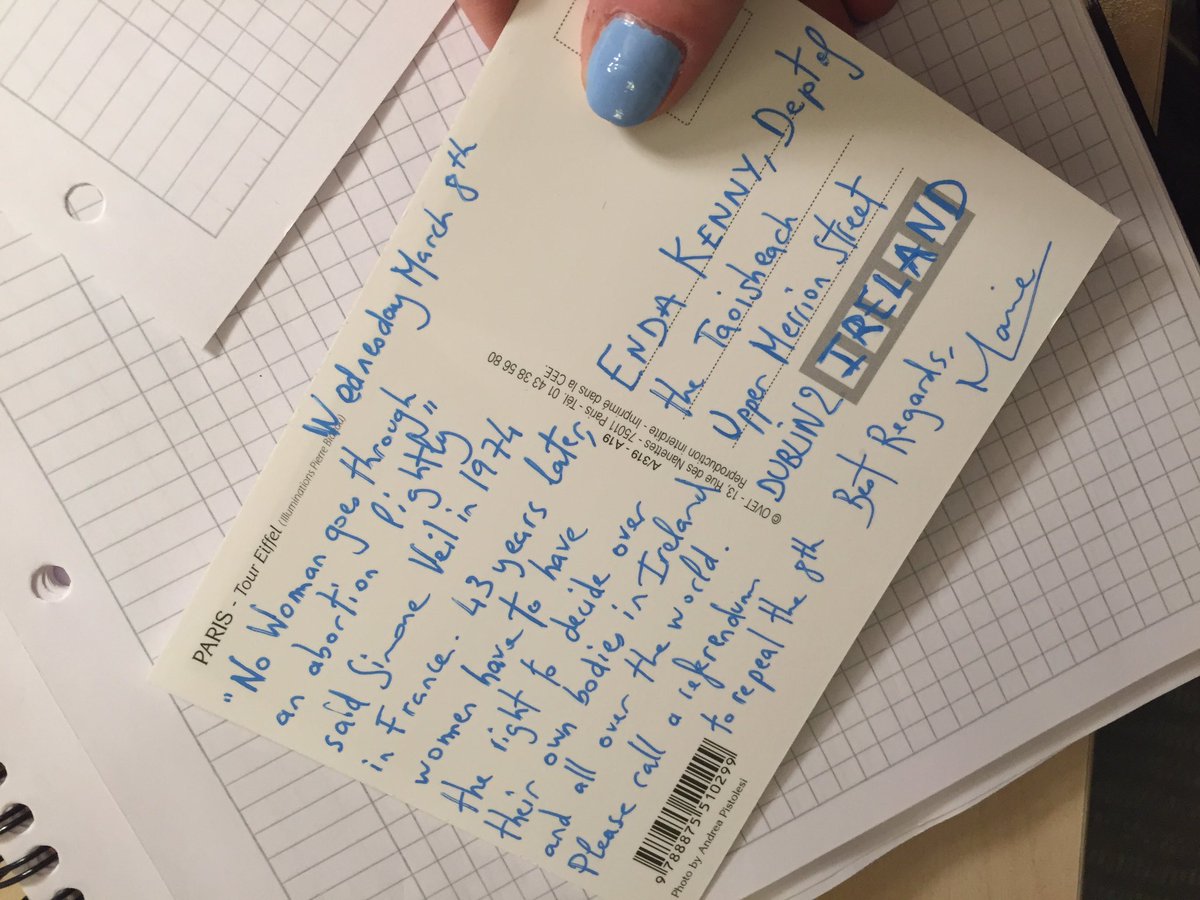 PARIS - Tour Eiffel (Illuminations Pierre Bideau)
Wednesday March 8th
"No Woman goes through
an abortion lightly"
said Simone Veil in 1974
in France. 43 years later,
women have to have
the right to decide over
their own bodies in Ireland
and all over the world.
Please call a referendum
to repeal the 8th
Best Regards,
Marie
ENDA KENNY, Dept of
the Taoisheach
Upper Merrion Street
DUBLIN 2 IRELAND
© OVET - 13, Rue des Nanettes - 75011 Paris - Tél. 01 43 38 56 80
Reproduction interdite - Imprimé dans la CEE.
A/319 - A19
9 788875 510299
Photo by Andrea Pistolesi